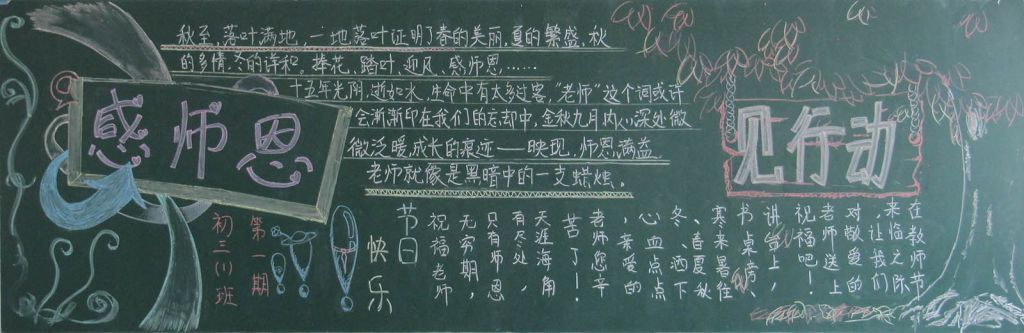 感师恩
见行动
秋至,落叶满地,一地落叶证明了春的美丽,夏的繁盛,秋
的多情,冬的详和。捧花、踏叶、迎风、感师恩……
十五年光阴,逝如水,生命中有太多过客,“老师”这个词或许
会渐渐印在我们的忘却中,金秋九月内心深处微
微泛暖,成长的痕迹——映现,师恩满益。
老师就像是黑暗中的一支蜡烛。
在教师节
来临之际
,让我们
对敬爱的
老师送上
祝福吧!
讲台上,
书桌旁,
寒来暑往
、春夏秋
冬、洒下
心血点点
,亲爱的
老师您辛
苦了!
天涯海角
有尽处,
只有师恩
无穷期,
祝福老师
节日
快乐
第一期
初三(1)班